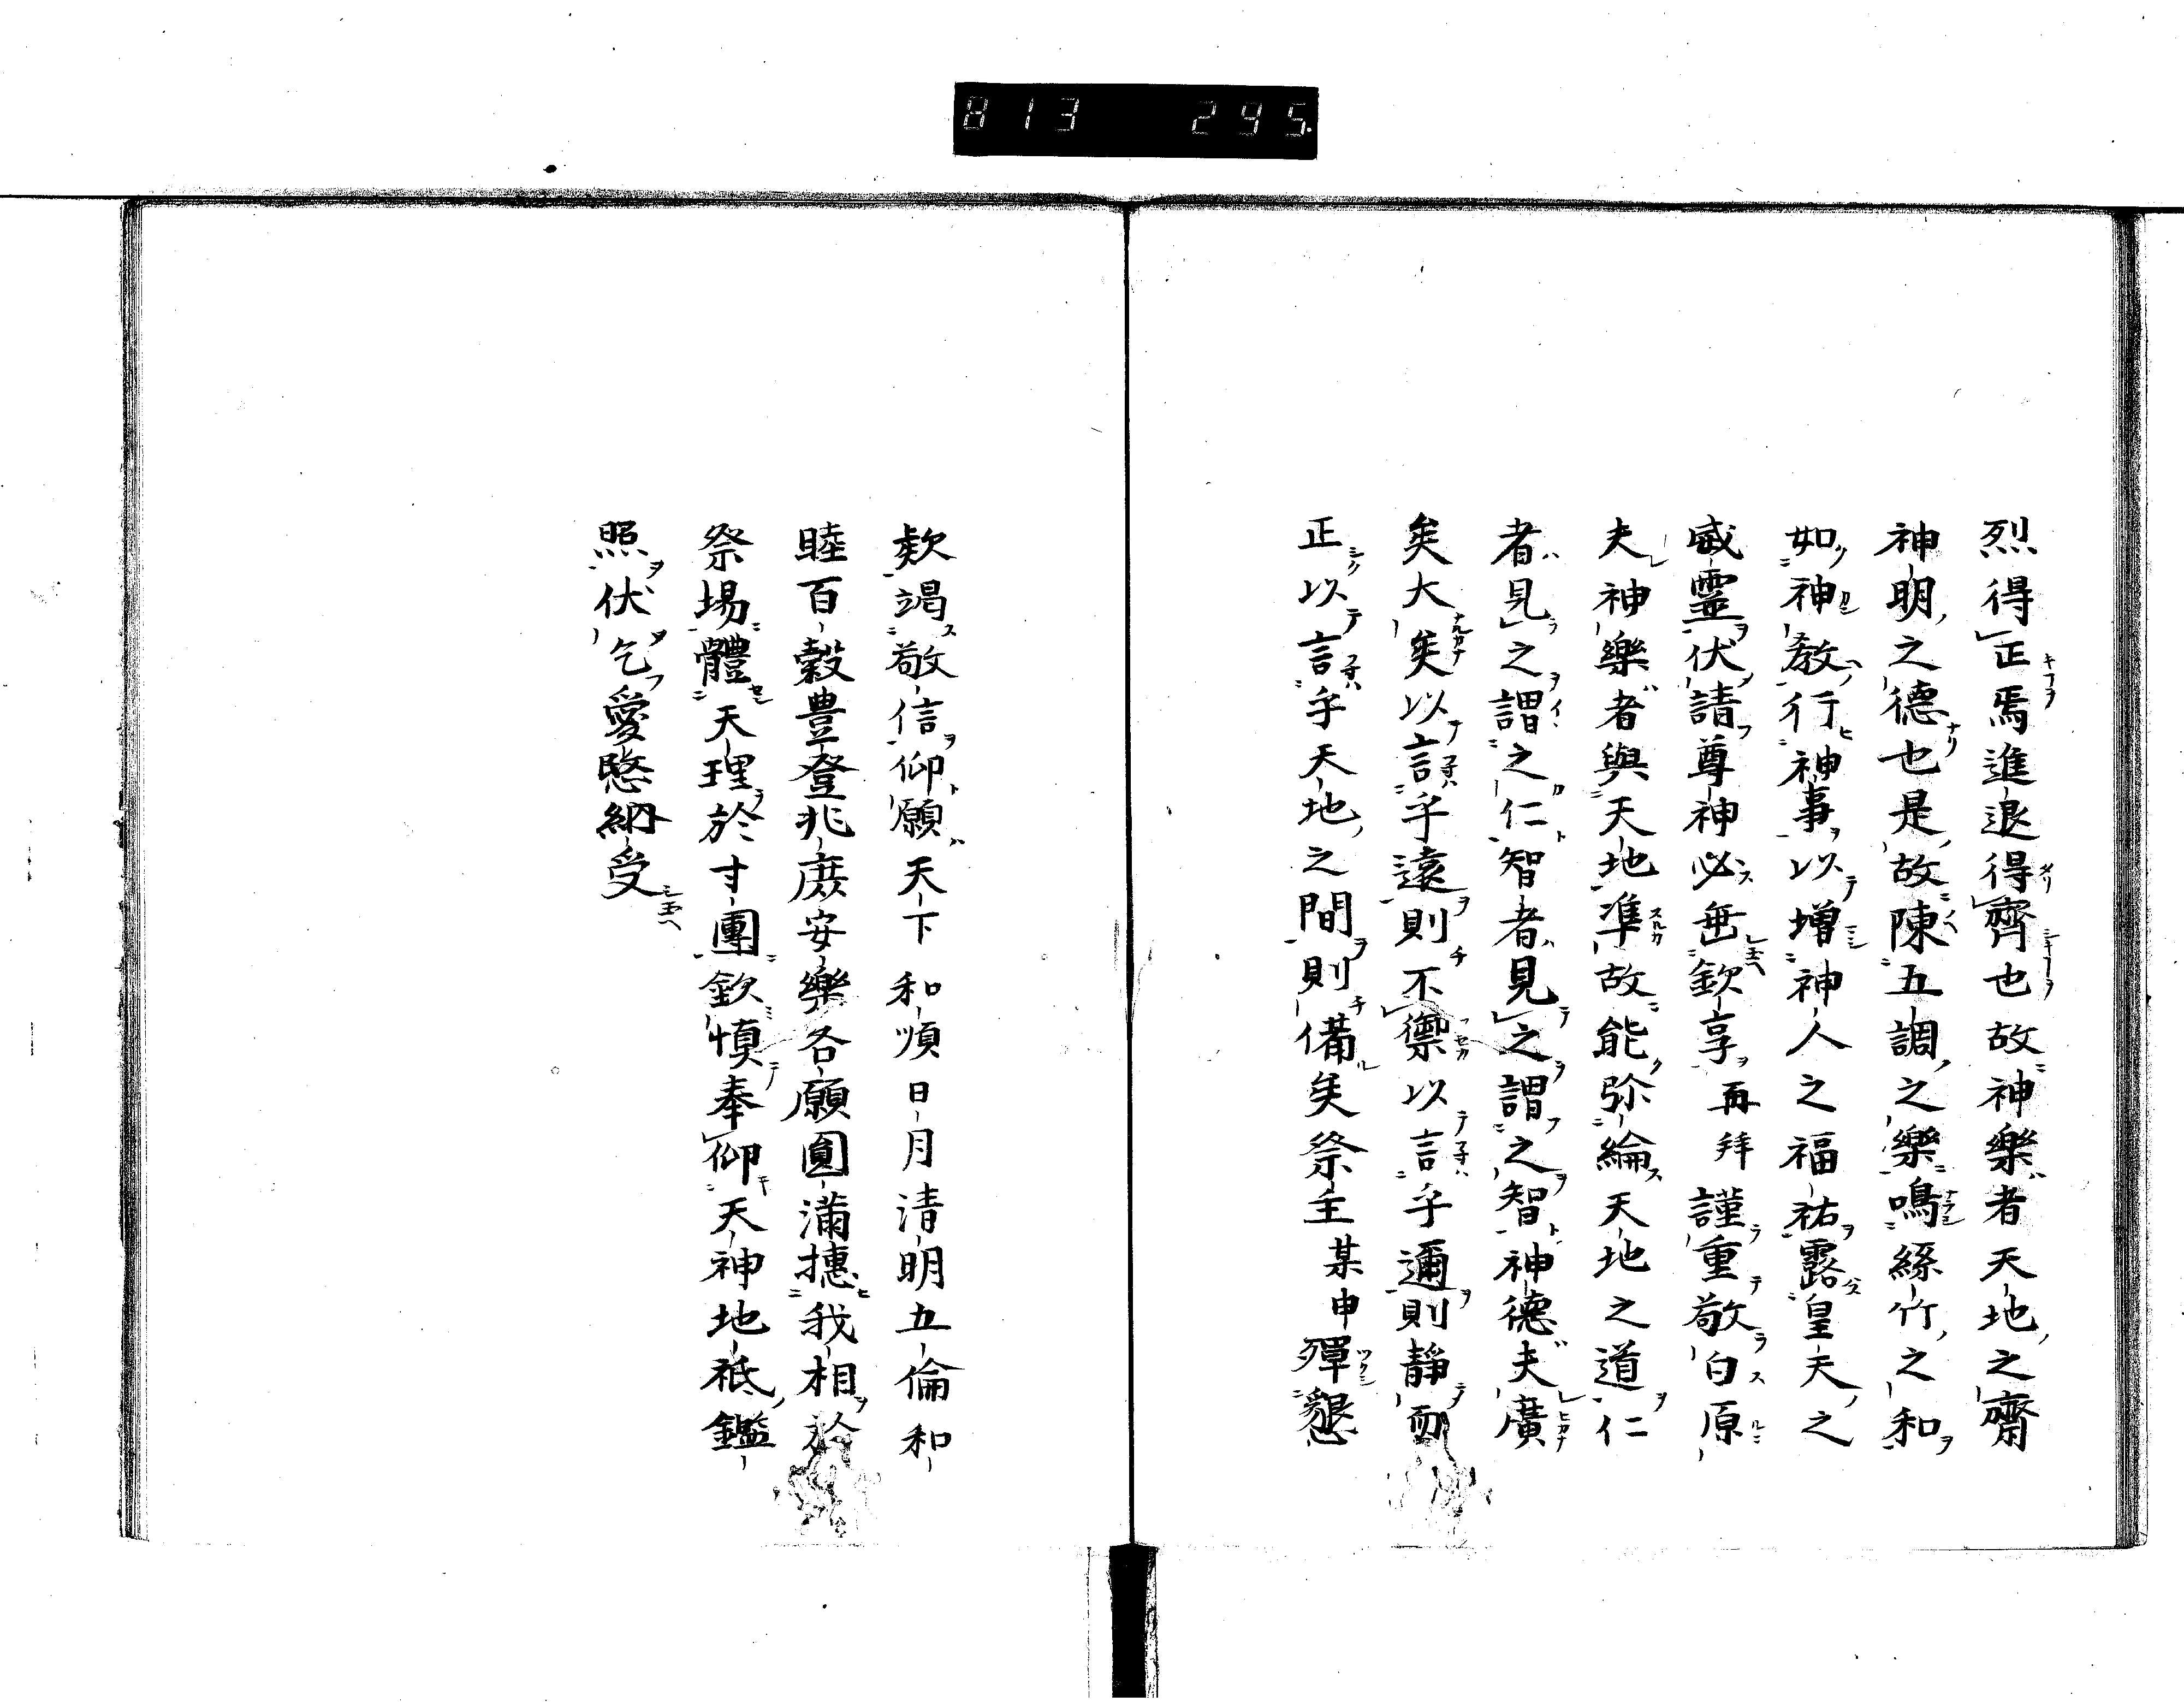 813 295
烈得正焉進退得齊也故神樂者天地之齊
神明之德也是故陳五調之樂鳴絲竹之和
如神教行神事以增神人之福祐露皇天之
威靈伏請尊神必垂欽享再拜謹重敬白原
夫神樂者與天地準故能弥綸天地之道仁
者見之謂之仁智者見之謂之智神德夫廣
矣大矣以言乎遠則不禦以言乎邇則靜而
正以言乎天地之間則備矣祭主某申殫懇
欵竭敬信仰願天下和順日月清明五倫和
睦百穀豊登兆庶安樂各願圓滿摠我相於
祭場體天理於寸團欽慎奉仰天神地祇鑑
照伏乞愛愍納受